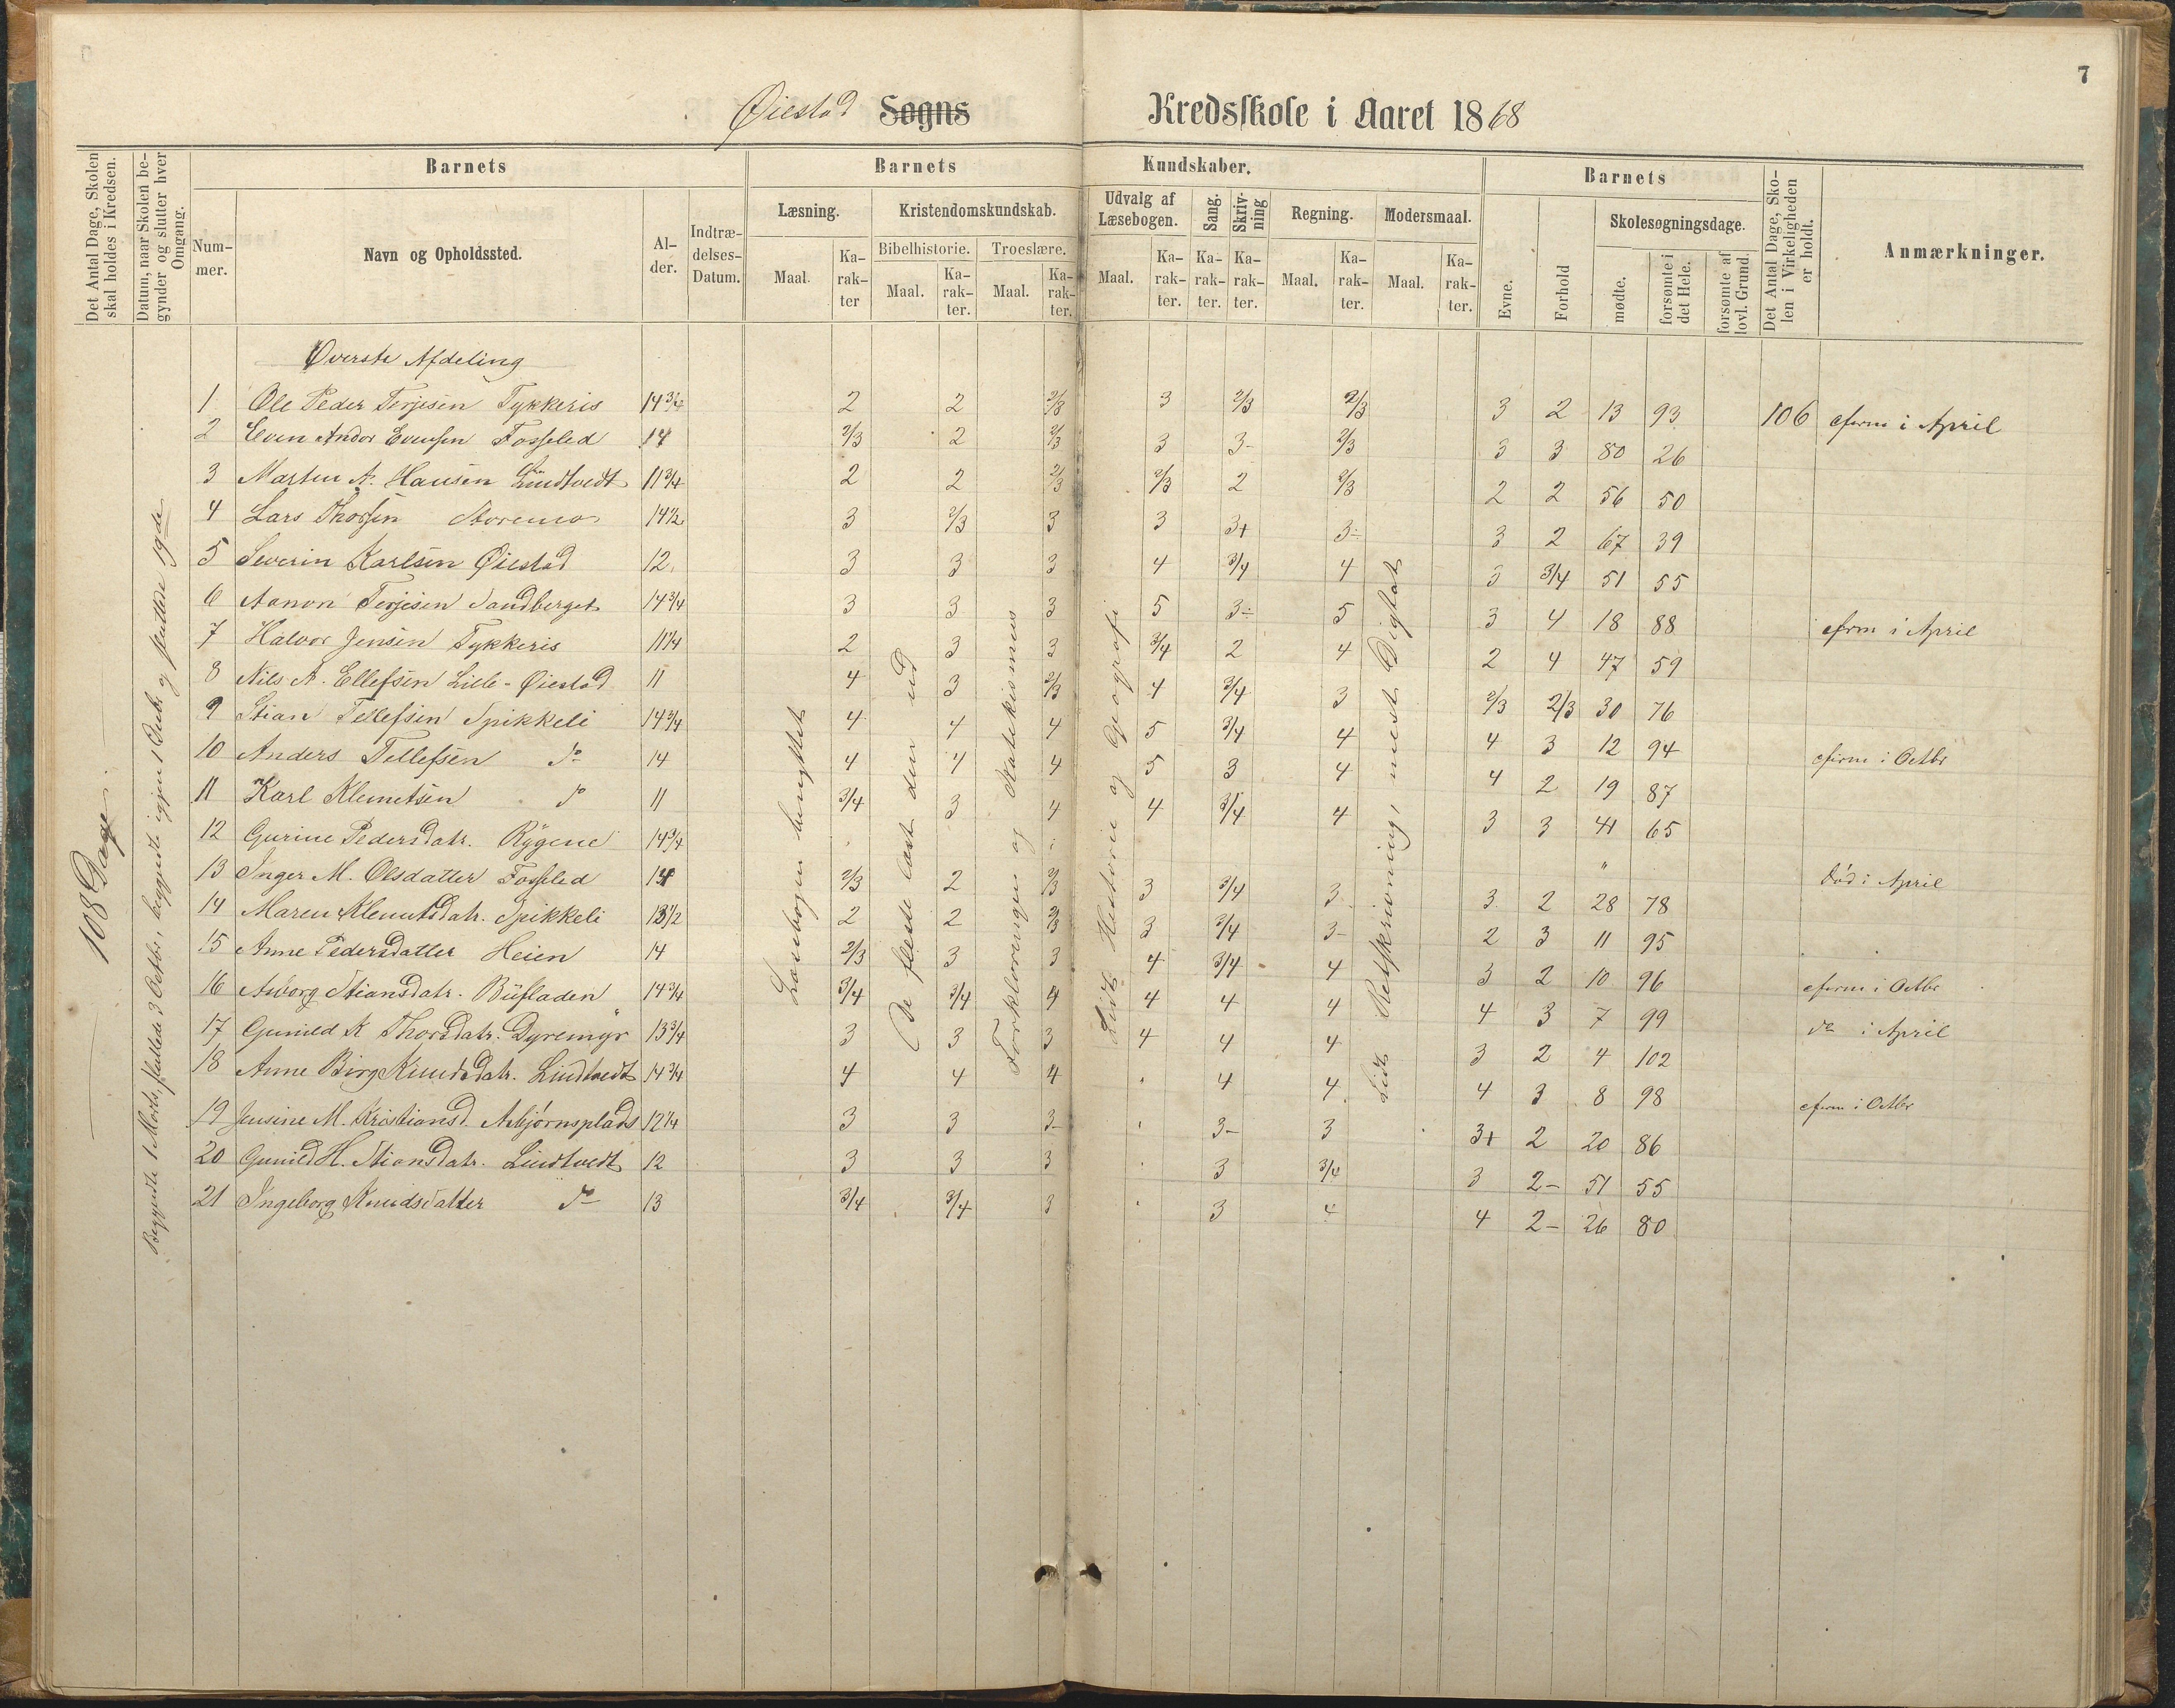 7
Øiestad Sogns Kredsskole i Aaret 1868
Det Antal Dage, Skolen skal holdes i Kredsen.
Datum, naar Skolen begynder og slutter hver Omgang.
Barnets
Nummer.
Navn og Opholdssted.
Alder.
Indtrædelses-Datum.
Barnets Kundskaber.
Læsning.
Maal.
Karakter
Kristendomskundskab.
Bibelhistorie.
Maal.
Karakter.
Troeslære.
Maal.
Karakter.
Udvalg af Læsebogen.
Maal.
Karakter.
Sang.
Karakter.
Skrivning
Karakter.
Regning.
Maal.
Karakter.
Modersmaal.
Maal.
Karakter.
Barnets
Evne.
Forhold
Skolesøgningsdage.
mødte.
forsømte i det Hele.
forsømte af lovl. Grund.
Det Antal Dage, Skolen i Virkeligheden er holdt.
Anmærkninger.
108 Dage
Begyndte 1 Marts, sluttede 3 Octbr, begyndte igjen 1 Decbr og sluttede 19de
Øverste Afdeling
1 Ole Peder Terjesen Tykkeris 14 3/4 2 2 2/3 3 2/3 2/3 3 2 13 93 106 cfirm i April
2 Even Andor Evensen Fosseled 14 2/3 2 2/3 3 3- 2/3 3 3 80 26
3 Marten A. Hansen Lindtvedt 11 3/4 2 2 2/3 2/3 2 2/3 2 2 56 50
4 Lars Thorsen Storemo 14 1/2 3 2/3 3 3 3+ 3÷ 3 2 67 39
5 Severin Karlsen Øiestad 12 3 3 3 4 3/4 4 3 3/4 51 55
6 Aanon Terjesen Sandberget 14 3/4 3 3 3 5 3÷ 5 3 4 18 88 cfirm i April
7 Halvor Jensen Tykkeris 11 1/4 2 3 3 3/4 2 4 2 4 47 59
8 Nils A. Ellefsen Lille-Øiestad 11 4 3 2/3 4 3/4 3 2/3 2/3 30 76
9 Stian Tellefsen Spikkeli 14 3/4 4 4 4 5 3/4 4 4 3 12 94 cfirm i Octbr
10 Anders Tellefsen do 14 4 4 4 5 3 4 4 2 19 87
11 Karl Klemetsen do 11 3/4 3 4 4 3/4 4 3 3 41 65
12 Gurine Pedersdatr. Rygene 14 3/4 " Død i April
13 Inger M. Olsdatter Fosseled 14 2/3 2 2/3 3 3/4 3 3 2 28 78
14 Maren Klemetsdatr. Spikkeli 13 1/2 2 2 2/3 3 3/4 3- 2 3 11 95
15 Anne Pedersdatter Heien 14 2/3 3 3 4 3/4 4 3 2 10 96 cfirm i Octbr
16 Asborg Stiansdatr. Büfladen 14 3/4 3/4 3/4 4 4 4 4 4 3 7 99 do i April
17 Gunild K Thorsdatr. Dyremyr 13 3/4 3 3 3 4 4 4 3 2 4 102
18 Anne Birg. Knudsdatr. Lindtvedt 14 3/4 4 4 4 4 4 4 3 8 98 cfirm i Octbr
19 Jensine M. Kristiansd. Asbjørnsplads 12 1/4 3 3 3- 3- 3 3+ 2 20 86
20 Gunild H. Stiansdatr. Lindtvedt 12 3 3 3 3 3/4 3 2- 51 55
21 Ingeborg Knudsdatter do 13 3/4 3/4 3 3 4 4 2- 26 80
Læsebogen benyttet
De fleste læst den ud
Forklaringen og Katekismus
Lidt Historie og Geografi
Lidt Retskrivning, mest Digtat